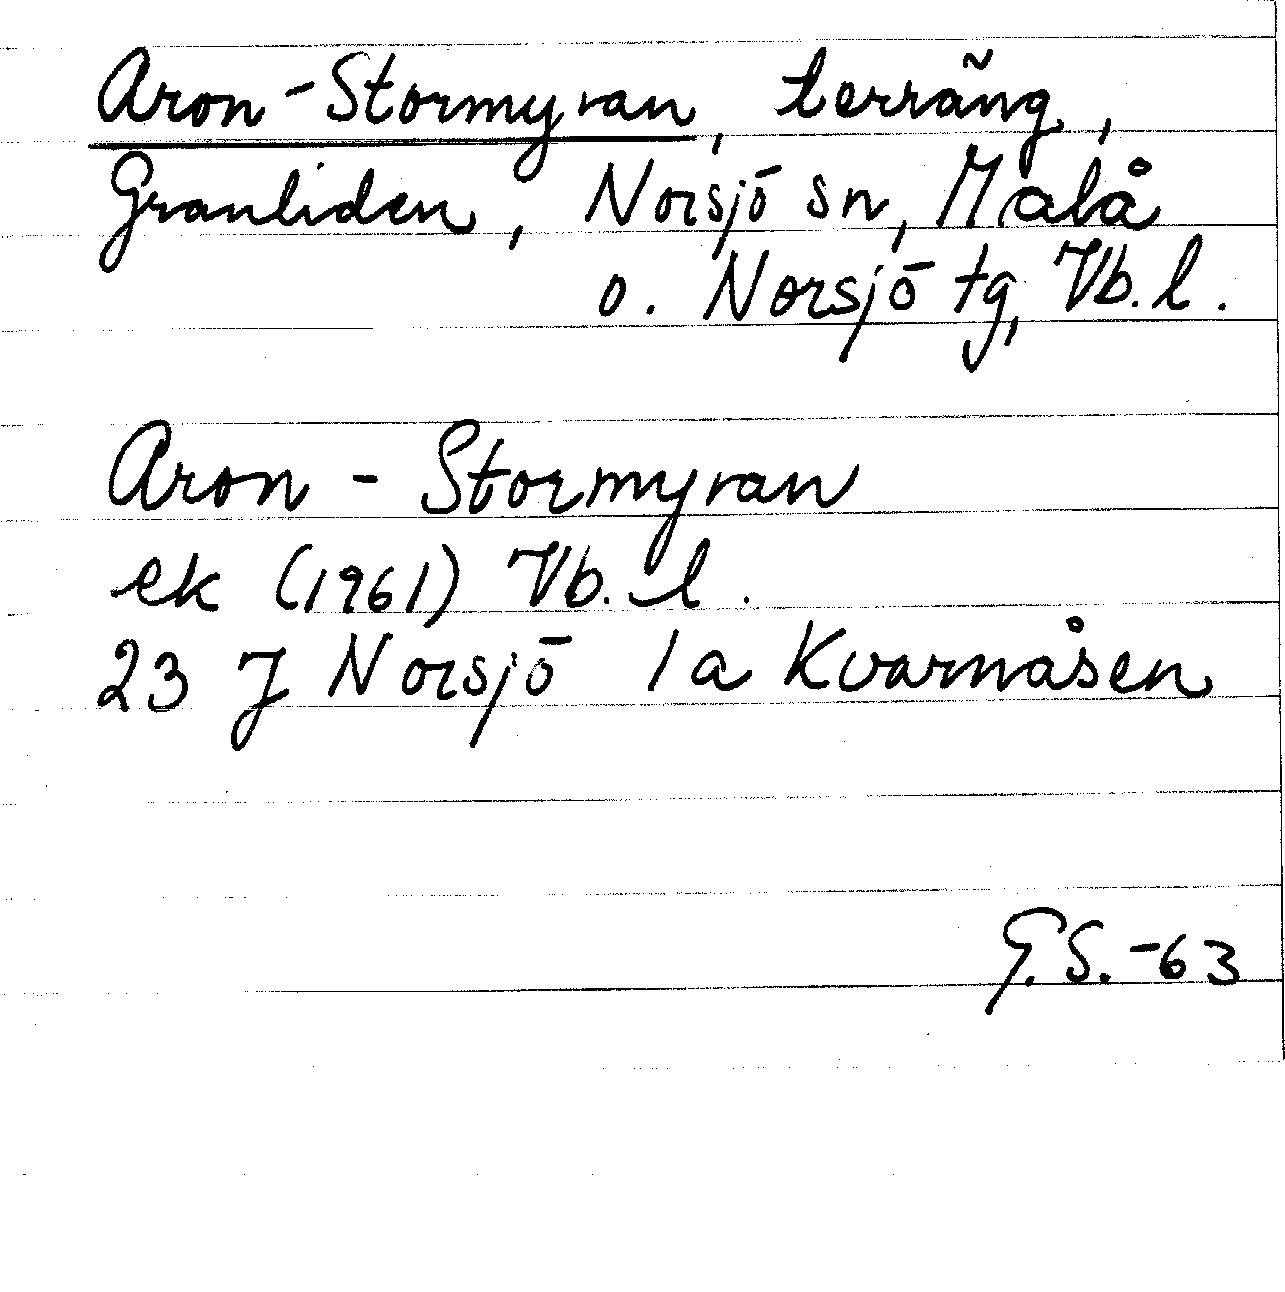 Aron-Stormyran, terräng,
Granliden, Norsjö sn, Malå
o. Norsjö tg, Vb. l.
Aron - Stormyran
ek (1961) Vb. l.
23 J Norsjö 1a Kvarnåsen
G.S. -63